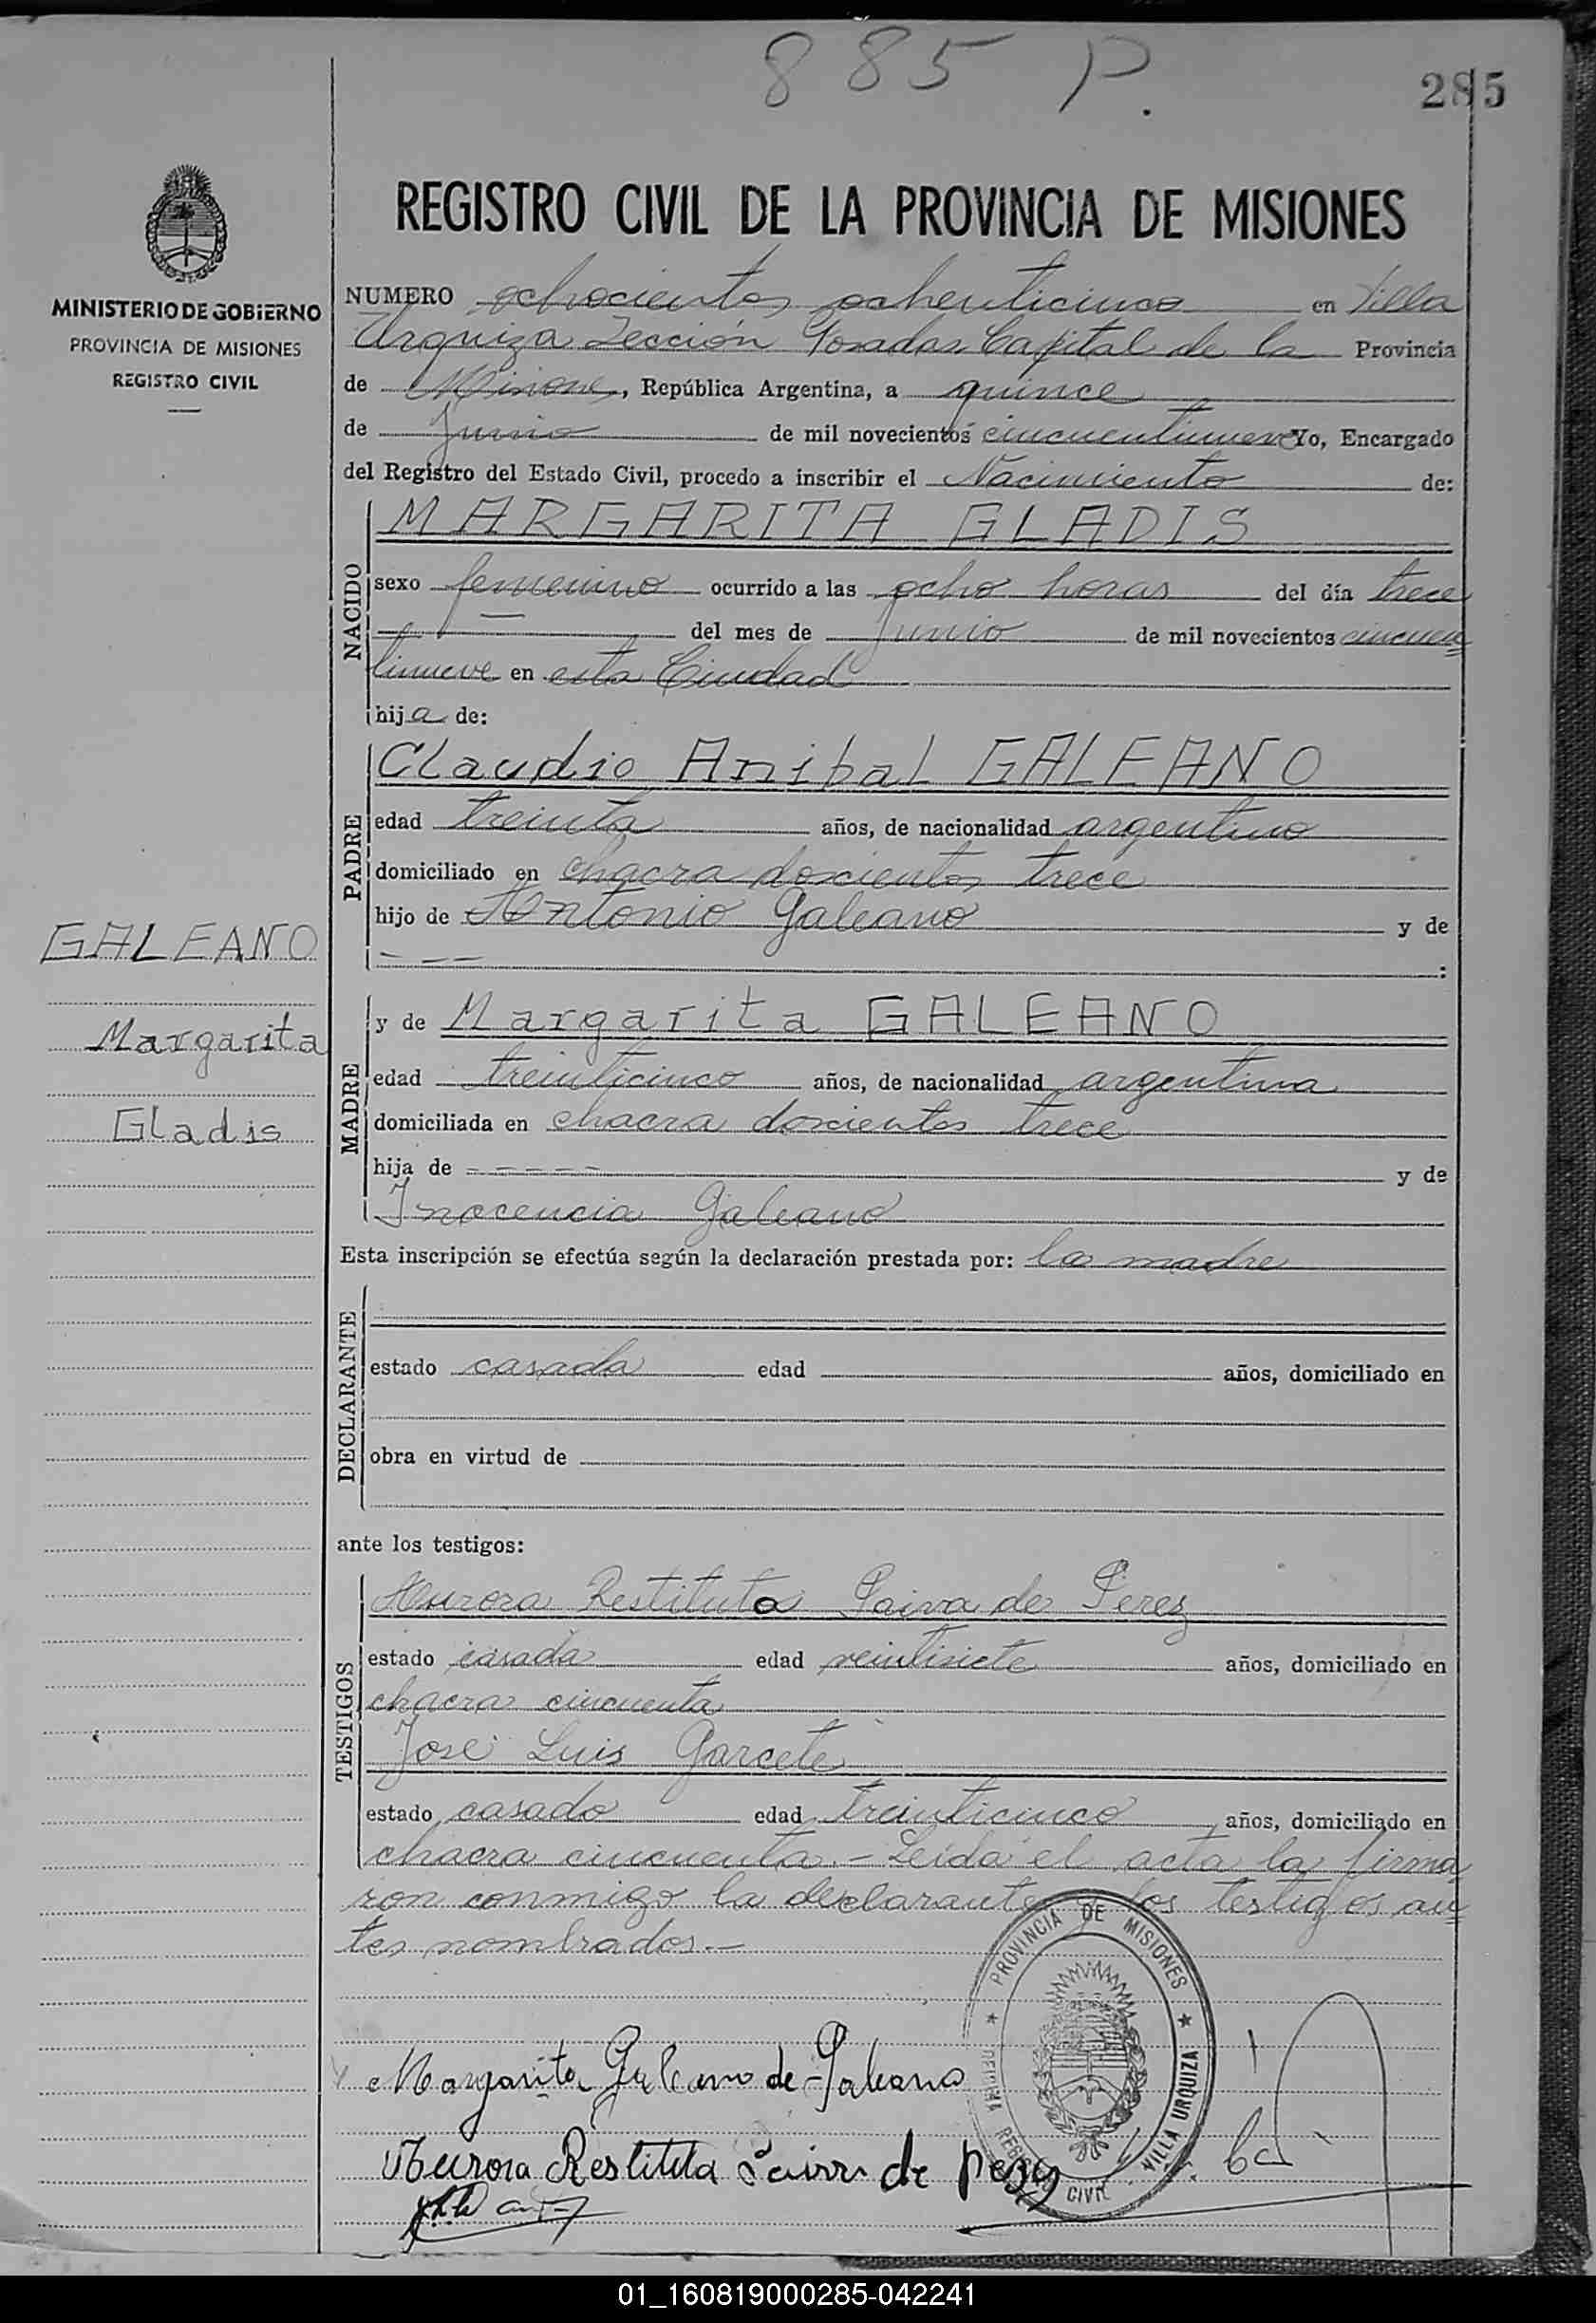 885 P.
285
REGISTRO CIVIL DE LA PROVINCIA DE MISIONES
MINISTERIO DE GOBIERNO
PROVINCIA DE MISIONES
REGISTRO CIVIL
GALEANO
Margarita
Gladis
NUMERO ochocientos ochenticinco en Villa
Urquiza Sección Posadas Capital de la Provincia
de Misiones, República Argentina, a quince
de Junio de mil novecientos cincuentinueve Yo, Encargado
del Registro del Estado Civil, procedo a inscribir el Nacimiento de:
NACIDO
MARGARITA GLADIS
sexo femenino ocurrido a las ocho horas del día trece
— del mes de Junio de mil novecientos cincuen=
tinueve en esta Ciudad
hija de:
PADRE
Claudio Anibal GALEANO
edad treinta años, de nacionalidad argentino
domiciliado en chacra doscientos trece
hijo de Antonio Galeano y de
- - - :
MADRE
y de Margarita GALEANO
edad treinticinco años, de nacionalidad argentina
domiciliada en chacra doscientos trece
hija de - - - - - y de
Inocencia Galeano
Esta inscripción se efectúa según la declaración prestada por: la madre
DECLARANTE
estado casada edad años, domiciliado en
obra en virtud de
ante los testigos:
TESTIGOS
Aurora Restituta Paiva de Perez
estado casada edad veintisiete años, domiciliado en
chacra cincuenta
José Luis Garcete
estado casado edad treinticinco años, domiciliado en
chacra cincuenta.- Leida el acta la firma
ron conmigo la declarante y los testigos an=
tes nombrados.—
PROVINCIA DE MISIONES
REGISTRO CIVIL
VILLA URQUIZA
Margarita Galeano de Galeano
Aurora Restituta Paiva de Perez
01_160819000285-042241